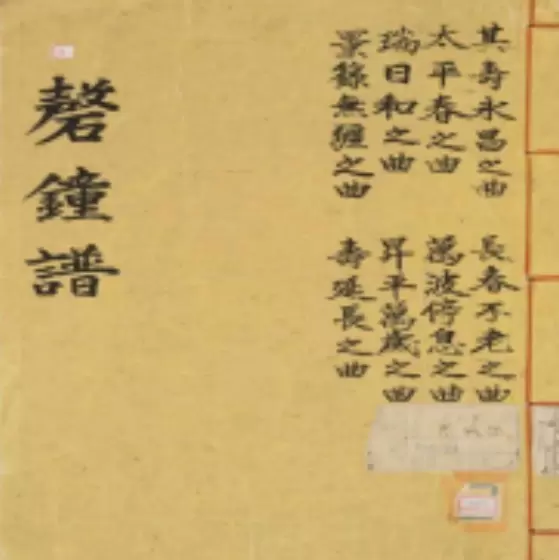 其壽永昌之曲
太平春之曲
瑞日和之曲
景籙無疆之曲
長春不老之曲
萬波停息之曲
昇平萬歲之曲
壽延長之曲
磬鐘譜